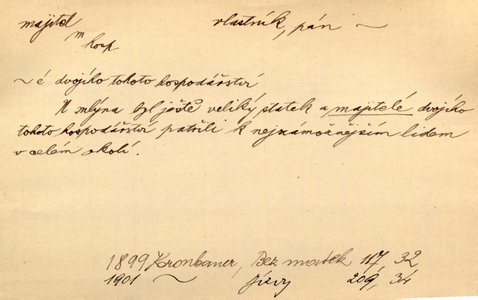 majitel vlastník, pán ~
m
hosp
~é dvojího tohoto hospodářství
U mlýna byl ještě veliký statek a majitelé dvojího
tohoto hospodářství patřili k nejzámožnějším lidem
v celém okolí.
1899 Kronbauer, Bez matek 117, 32
1901 ~ Jizvy 209, 34